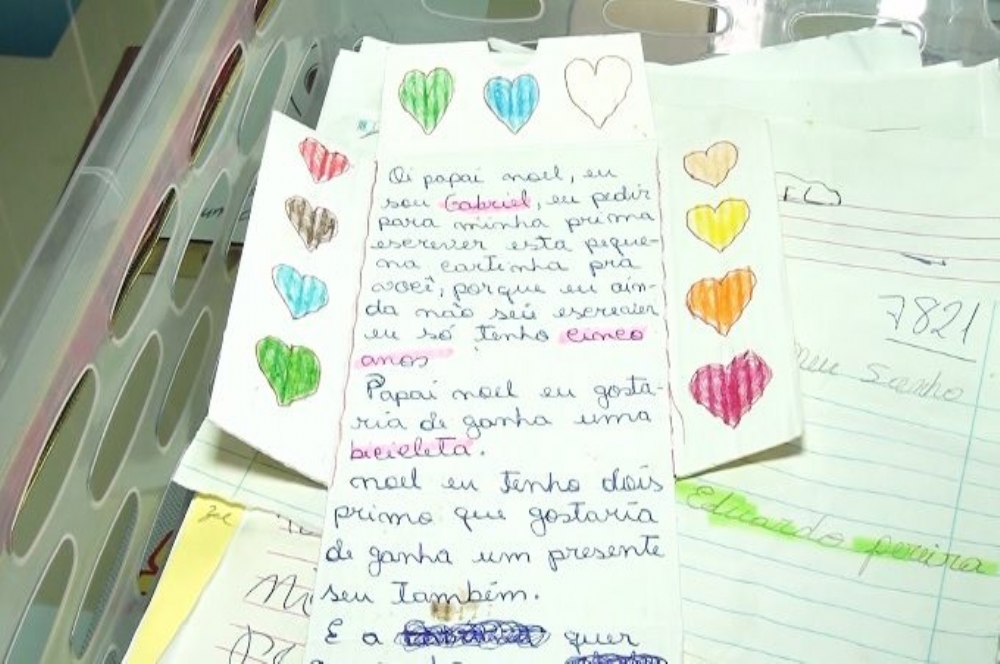 Oi papai noel, eu
sou Gabriel, eu pedir
para minha prima
escrever esta peque-
na cartinha pra
você, porque eu ain-
da não sei escrever
eu só tenho cinco
anos
Papai noel eu gosta-
ria de ganha uma
bicicleta.
noel eu tenho dois
primo que gostaria
de ganha um presente
seu também.
E a quer
7821
meu sonho
Eduardo pereira